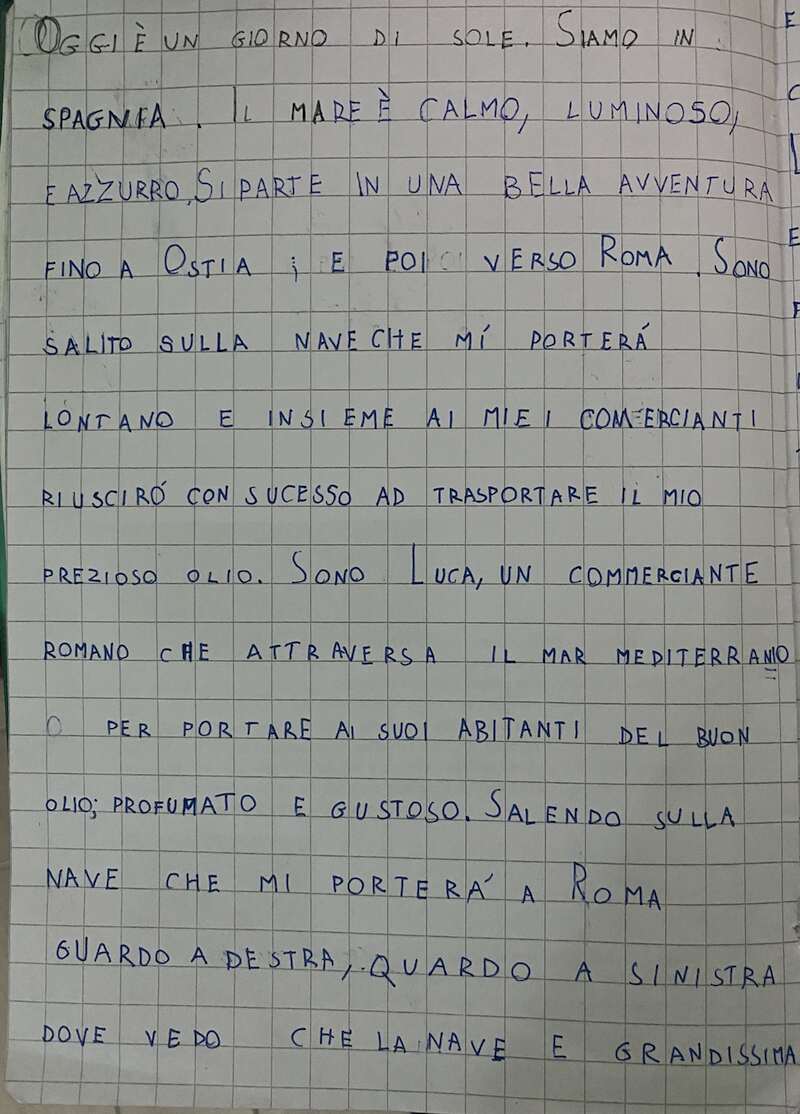 OGGI È UN GIORNO DI SOLE. SIAMO IN
SPAGNIA. IL MARE È CALMO, LUMINOSO,
E AZZURRO. SI PARTE IN UNA BELLA AVVENTURA
FINO A OSTIA ; E POI VERSO ROMA. SONO
SALITO SULLA NAVE CHE MÍ PORTERÁ
LONTANO E INSIEME AI MIEI COMERCIANTI
RIUSCIRÓ CON SUCESSO AD TRASPORTARE IL MIO
PREZIOSO OLIO. SONO LUCA, UN COMMERCIANTE
ROMANO CHE ATTRAVERSA IL MAR MEDITERRANIO
O PER PORTARE AI SUOI ABITANTI DEL BUON
OLIO; PROFUMATO E GUSTOSO. SALENDO SULLA
NAVE CHE MI PORTERÁ A ROMA
GUARDO A DESTRA, QUARDO A SINISTRA
DOVE VEDO CHE LA NAVE E GRANDISSIMA